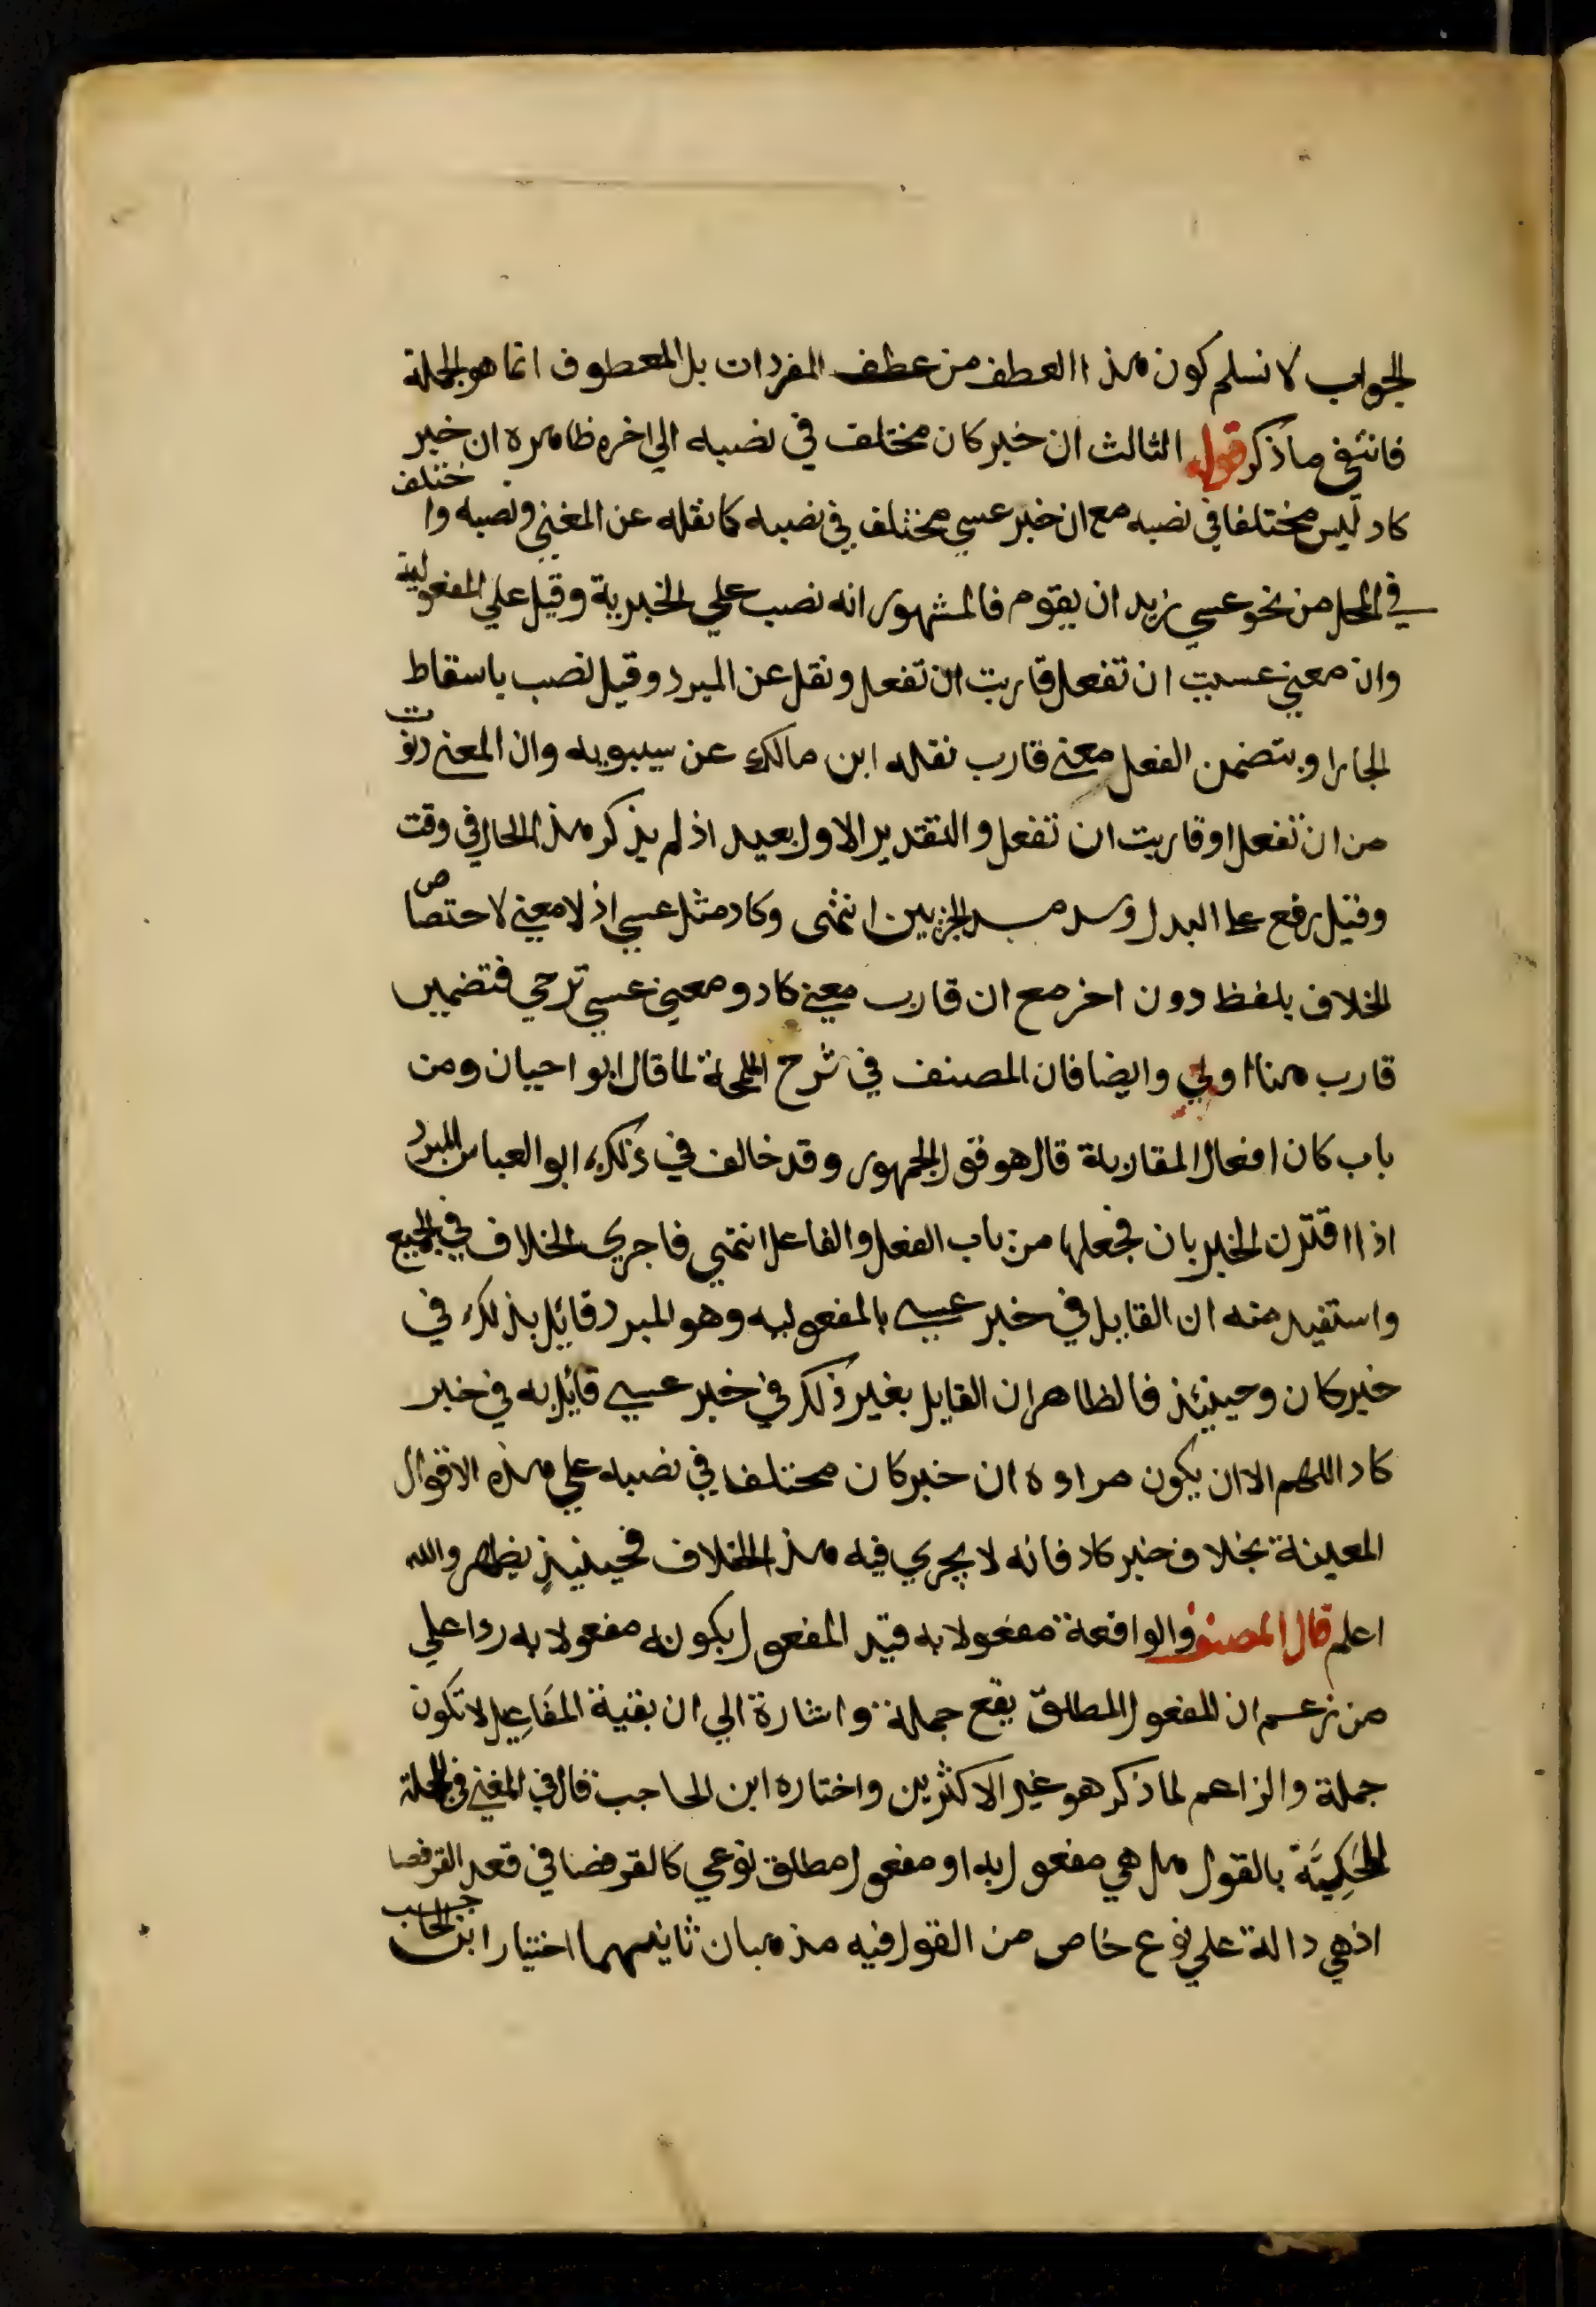 الجواب لا نسلم كون هذا العطف من عطف المفردات بل المعطوف انما هو الجملة
فانتفى ما ذكر قوله الثالث ان خبر كان مختلف في نصبه الي اخره ظاهره ان خبر
كاد ليس مختلفا في نصبه مع ان خبر عسي مختلف في نصبه كما نقله عن المغني ونصبه واختلف
في المحل من نحو عسي زيد ان يقوم فالمشهور انه نصب علي الخبرية وقيل علي المفعولية
وان معني عسيت ان تفعل قاربت ان تفعل ونقل عن المبرد وقيل نصب باسقاط
الجار او بتضمن الفعل معني قارب نقله ابن مالك عن سيبويه وان المعني دنوت
من ان تفعل او قاربت ان تفعل والتقدير الاول بعيد اذ لم يذكر هذا الجار في وقت
وقيل رفع علا البدل وسد مسد الجزيين انتهى وكاد مثل عسي اذ لا معني لاختصاص
الخلاف بلفظ دون اخر مع ان قارب معني كاد ومعني عسي ترجي فتضمين
قارب هنا اولي وايضا فان المصنف في شرح اللمحة لما قال ابو احيان ومن
باب كان افعال المقاربة قال هو قول الجمهور وقد خالف في ذلك ابو العباس المبرد
اذا اقترن الخبر بان فجعلها من باب الفعل والفاعل انتهي فاجري الخلاف في الجميع
واستفيد منه ان القايل في خبر عسي بالمفعوليه وهو المبرد قائل بذلك في
خبر كان وحينئذ فالظاهر ان القايل بغير ذلك في خبر عسي قائل به في خبر
كاد اللهم الا ان يكون مراده ان خبر كان مختلف في نصبه علي هذه الاقوال
المعينة بخلاف خبر كاد فانه لا يجري فيه هذا الخلاف فحينيذ يظهر والله
اعلم قال المصنف والواقعة مفعولا به قيد المفعول بكونه مفعولا به ردا علي
من زعم ان المفعول المطلق يقع جملة واشارة الي ان بقية المفاعيل لا تكون
جملة والزاعم لما ذكر هو غير الاكثرين واختاره ابن الحاجب قال في المغني في الجملة
المحكِيَّة بالقول هل هي مفعول به او مفعول مطلق نوعي كالقرفصا في قعد القرفصا
اذ هي دالة علي نوع خاص من القول فيه مذهبان ثانيهما اختيار ابن الحاجب